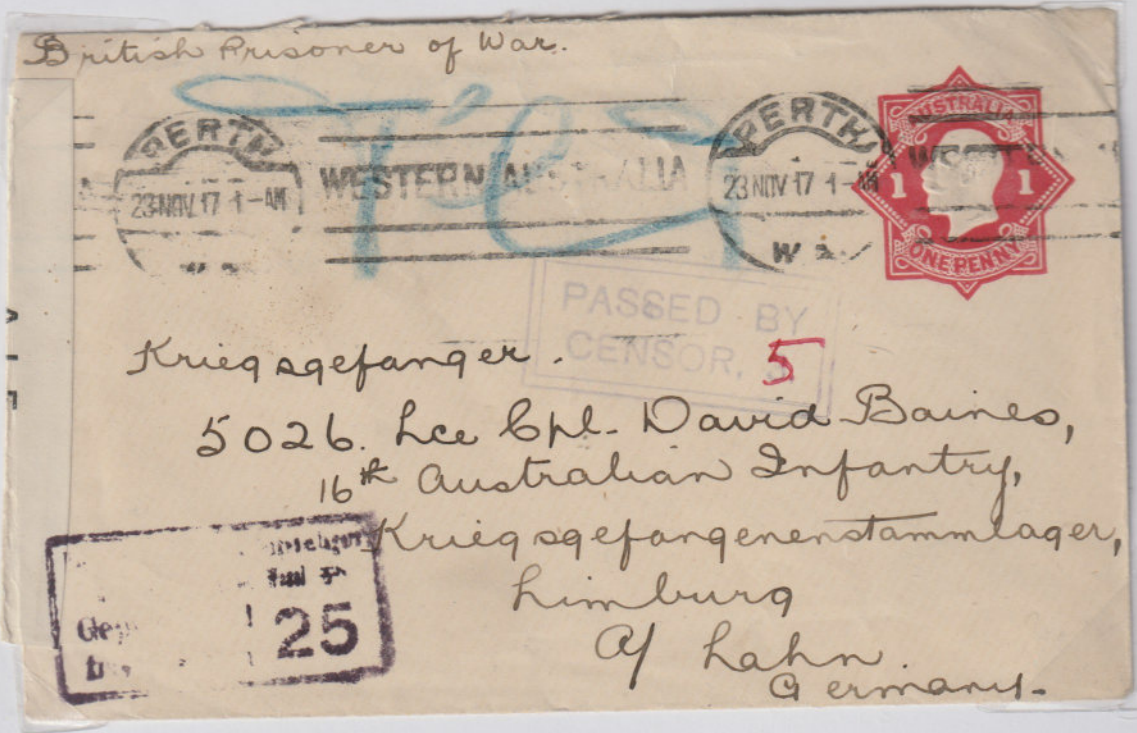 British Prisoner of War.
PERTH
23 NOV 17 1-AM
WESTERN AUSTRALIA
PERTH
23 NOV 17 1-AM
W.A.
AUSTRALIA
1 1
ONE PENNY
PASSED BY
CENSOR. 5
Kriegsgefanger.
5026. Lce Cpl. David Baines,
16th Australian Infantry,
Kriegsgefangenenstammlager,
Limburg
A/ Lahn.
Germany.
25